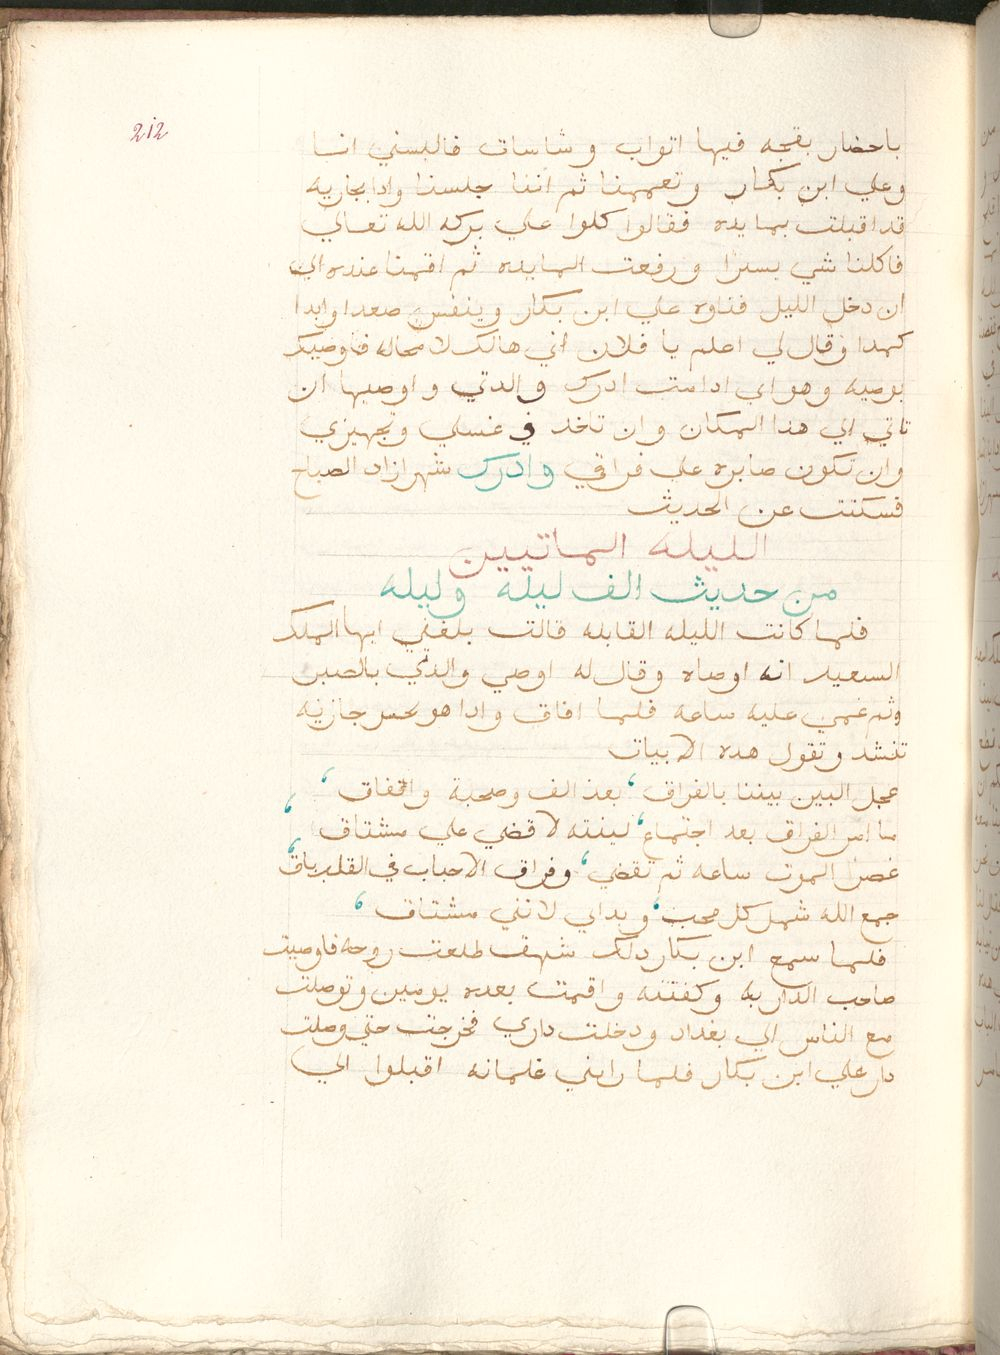 212
باحضار بقجه فيها اتواب وشاسات فالبسني انا
وعلي ابن بكار وتعممنا ثم اننا جلسنا وادا بجاريه
قد اقبلت بمايده فقالوا كلوا علي بركه الله تعالي
فاكلنا شي يسيرا ورفعت المايده ثم اقمنا عنده الي
ان دخل الليل فتاوه علي ابن بكار وينفس صعدا وابدا
كمدا وقال لي اعلم يا فلان اني هالك لا محاله فاوصيك
بوصيه وهو اي ادامت ادرك والدتي واوصيها ان
تاتي الي هدا المكان وان تاخد في غسلي وتجهيزي
وان تكون صابره علي فراقي وادرك شهرازاد الصباح
فسكتت عن الحديث
الليله الماتيين
من حديث الف ليله وليله
فلما كانت الليله القابله قالت بلغني ايها الملك
السعيد انه اوصاه وقال له اوصي والدتي بالصبر
وثم غمي عليه ساعه فلما افاق وادا هو بحس جازيه
تنشد وتقول هده الابيات
عجل البين بيننا بالفراق ، بعد الف وصحبة واتفاق ،
ما امر الفراق بعد اجتماع ، ليته لا قضي علي مشتاق ،
غصرا الموت ساعه ثم تقضي ، وفراق الاحباب في القلب باق ،
جمع الله شمل كل محب ، وبداي لانني مشتاق ،
فلما سمع ابن بكار دلك شهق طلعت روحه فاوصيت
صاحب الدار به وكفنته واقمت بعده يومين وتوصلت
مع الناس الي بغداد ودخلت داري فخرجت حتي وصلت
دار علي ابن بكار فلما راني غلمانه اقبلوا الي